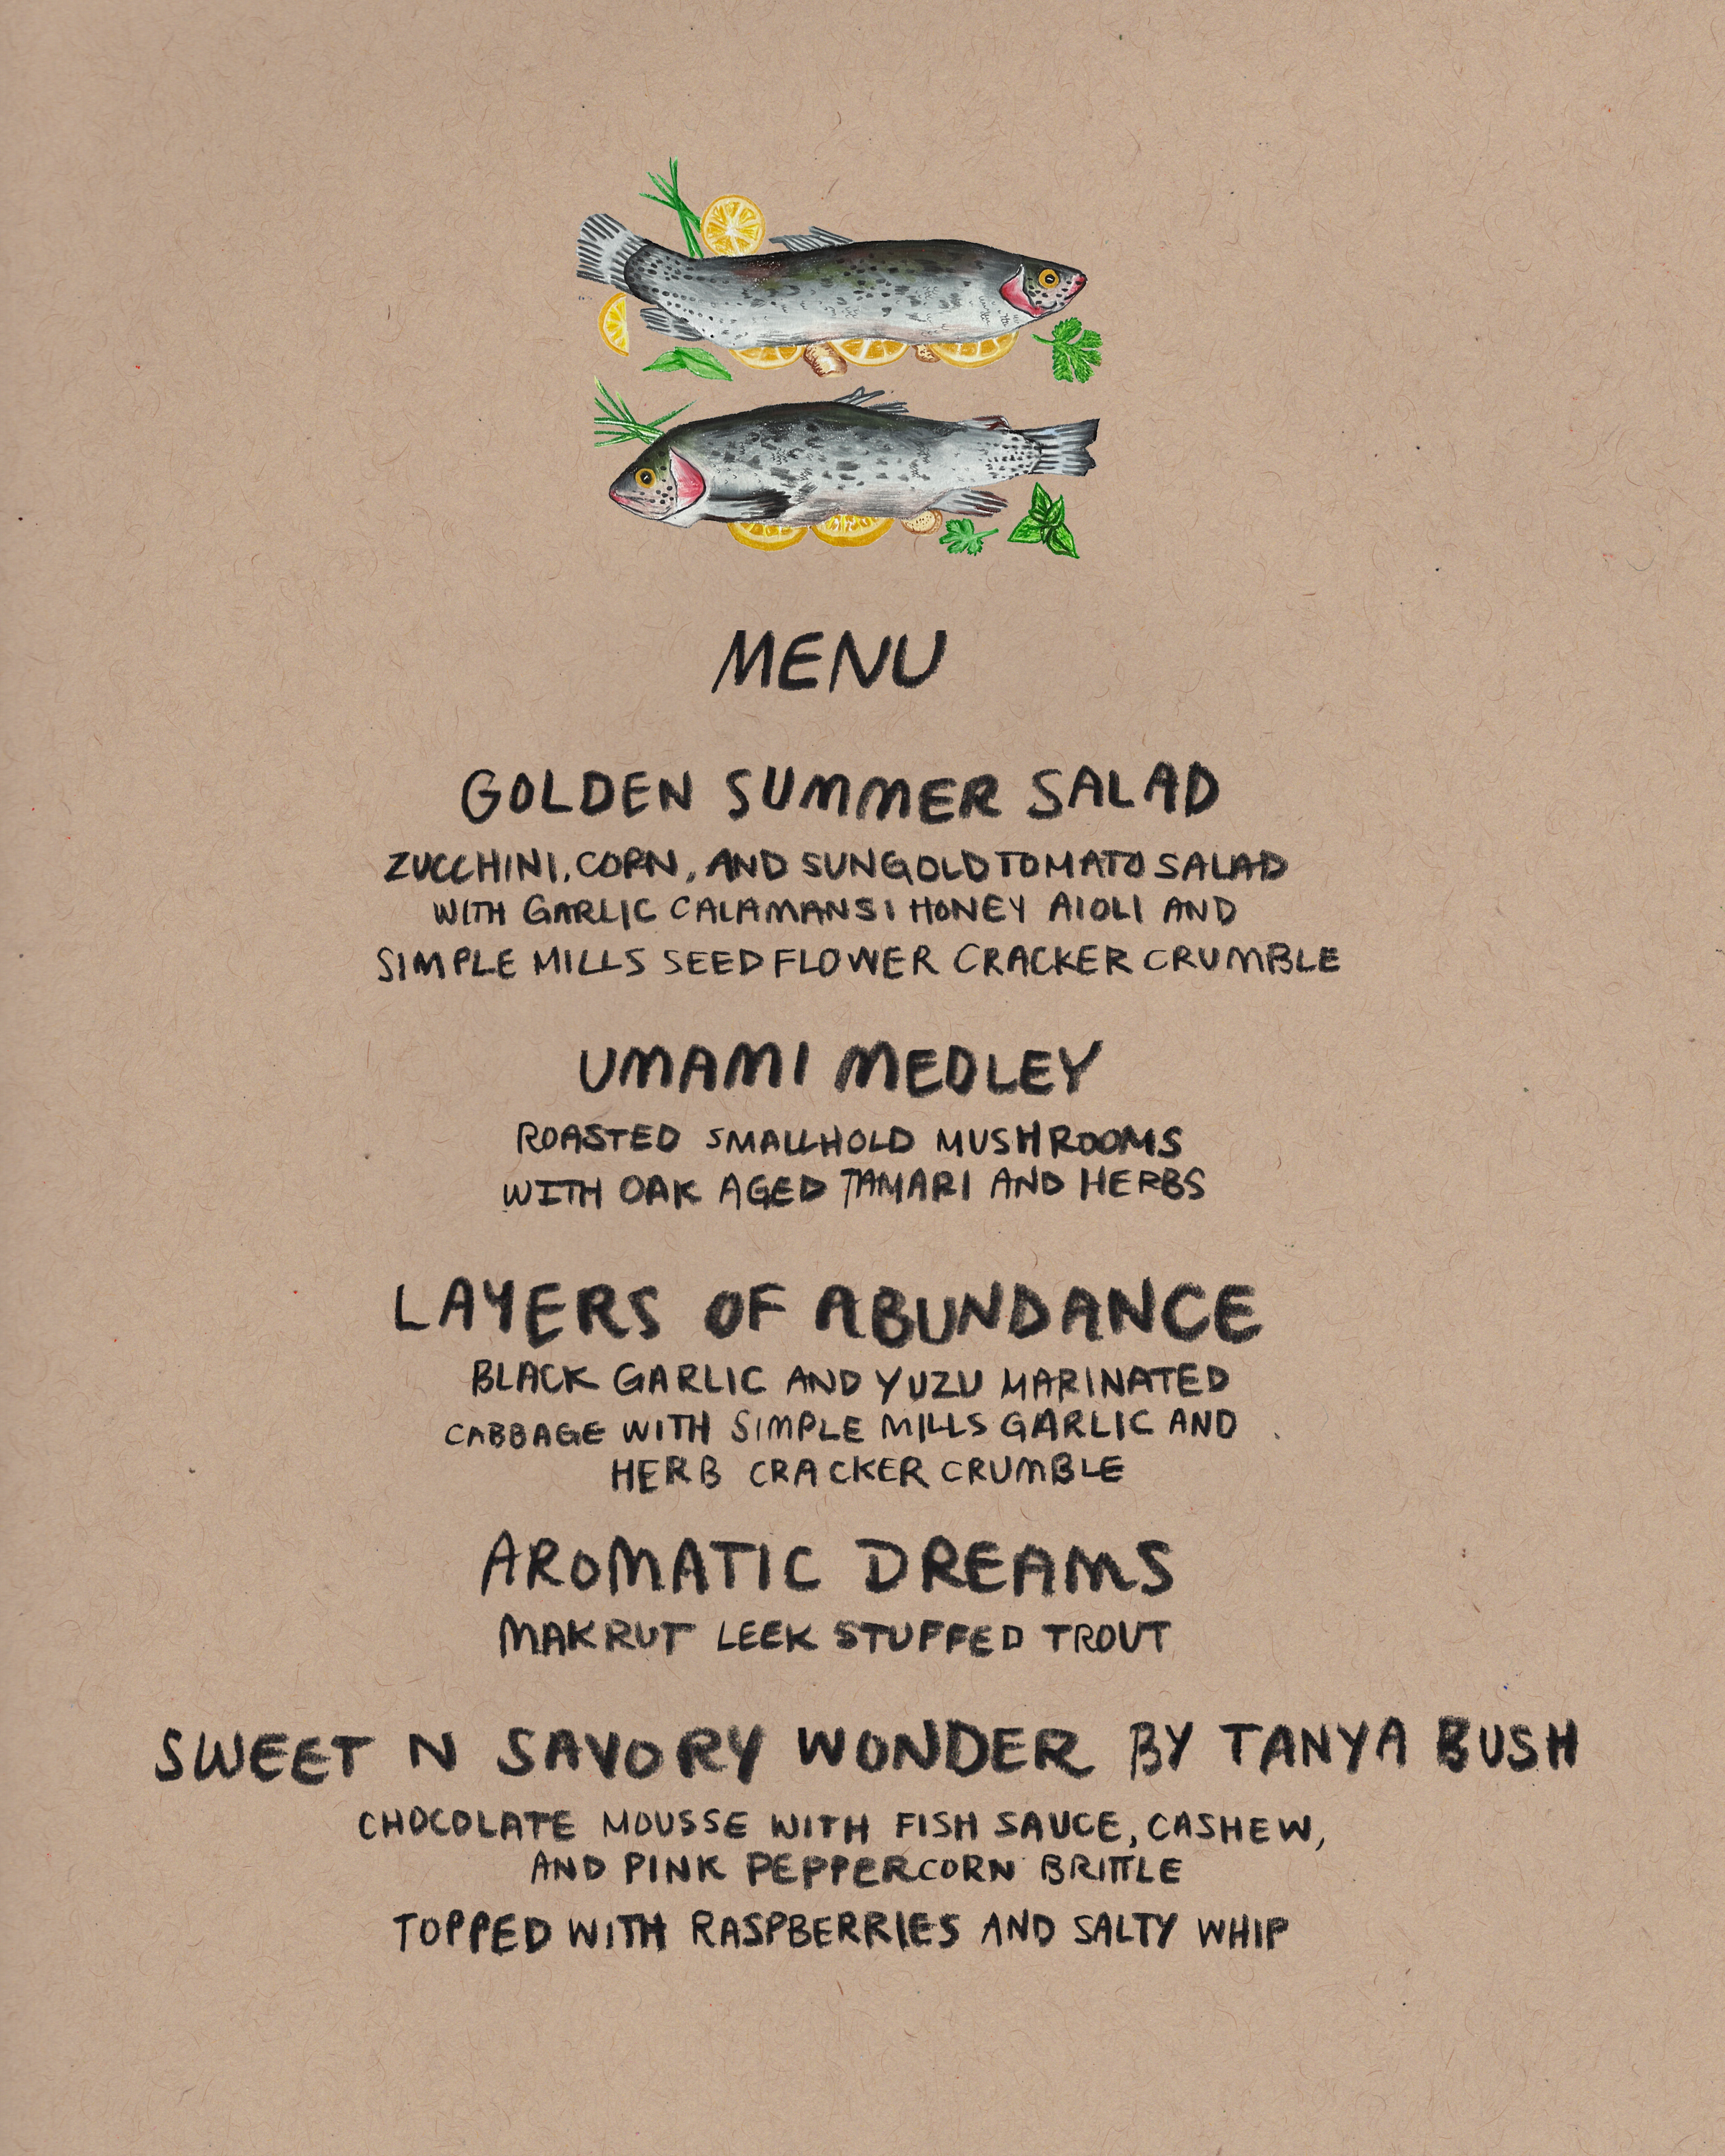 MENU
GOLDEN SUMMER SALAD
ZUCCHINI, CORN, AND SUNGOLD TOMATO SALAD
WITH GARLIC CALAMANSI HONEY AIOLI AND
SIMPLE MILLS SEED FLOWER CRACKER CRUMBLE
UMAMI MEDLEY
ROASTED SMALLHOLD MUSHROOMS
WITH OAK AGED TAMARI AND HERBS
LAYERS OF ABUNDANCE
BLACK GARLIC AND YUZU MARINATED
CABBAGE WITH SIMPLE MILLS GARLIC AND
HERB CRACKER CRUMBLE
AROMATIC DREAMS
MAKRUT LEEK STUFFED TROUT
SWEET N SAVORY WONDER BY TANYA BUSH
CHOCOLATE MOUSSE WITH FISH SAUCE, CASHEW,
AND PINK PEPPERCORN BRITTLE
TOPPED WITH RASPBERRIES AND SALTY WHIP